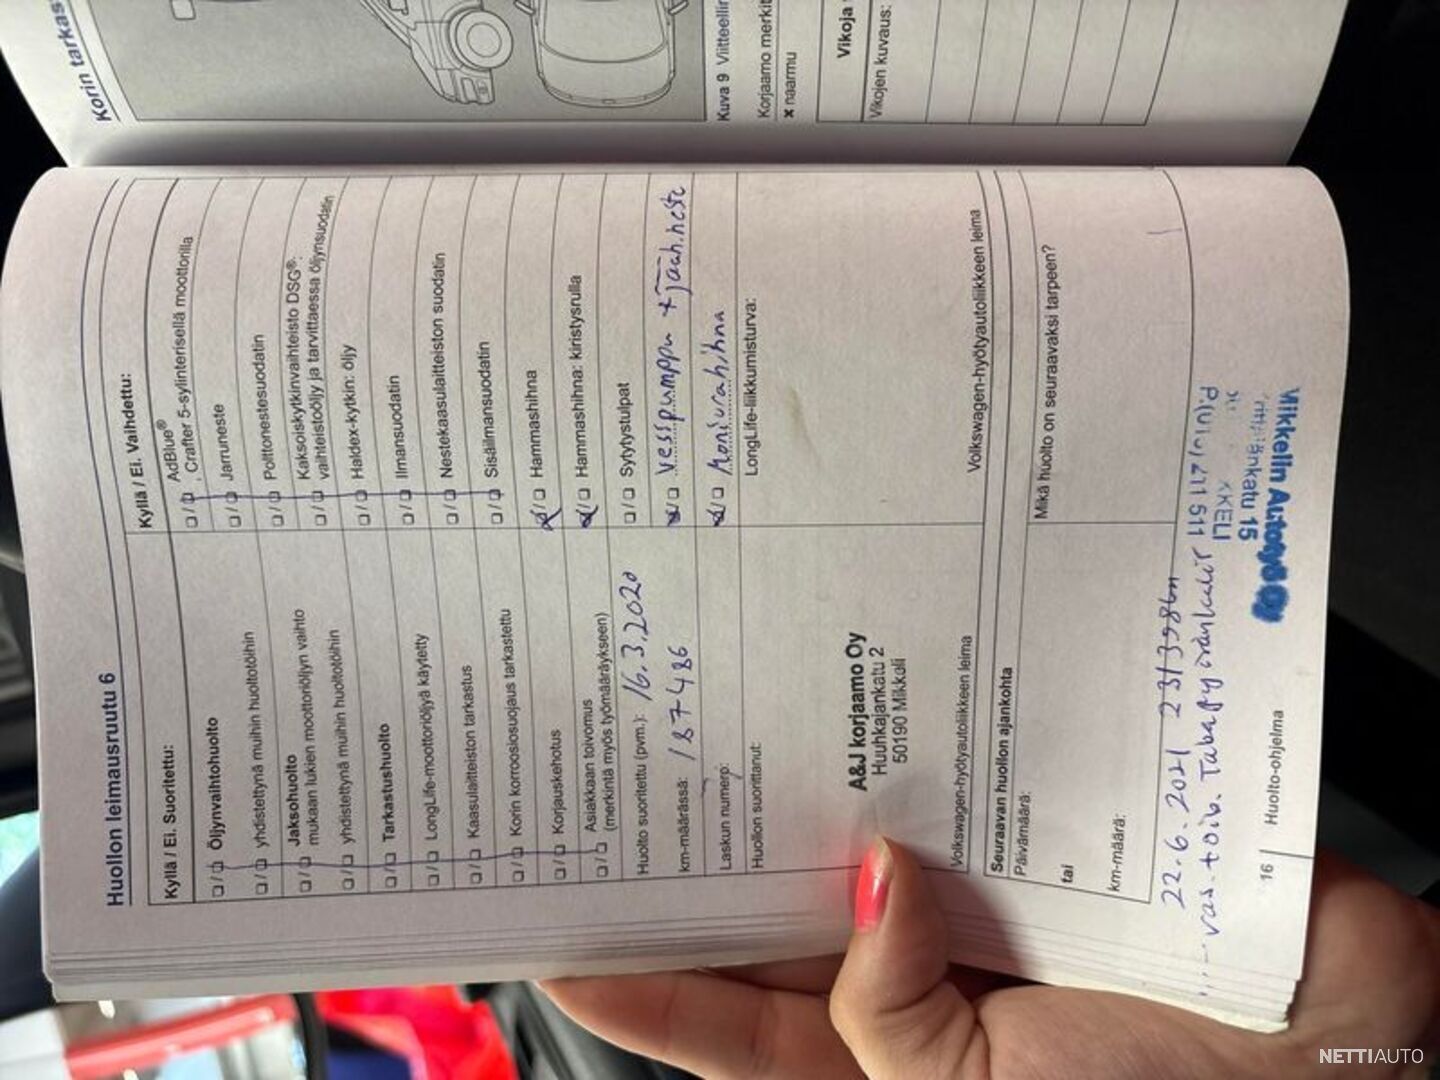 Korin tarkas
Kuva 9 Viitteellir
Korjaamo merkit
x naarmu
Vikoja
Vikojen kuvaus:
Huollon leimausruutu 6
Kyllä / Ei. Suoritettu:
Öljynvaihtohuolto
yhdistettynä muihin huoltotöihin
Jaksohuolto
mukaan lukien moottoriöljyn vaihto
yhdistettynä muihin huoltotöihin
Tarkastushuolto
LongLife-moottoriöljyä käytetty
Kaasulaitteiston tarkastus
Korin korroosiosuojaus tarkastettu
Korjauskehotus
Asiakkaan toivomus
(merkintä myös työmääräykseen)
Huolto suoritettu (pvm.): 16.3.2020
km-määrässä: 187486
Laskun numero:
Huollon suorittanut:
A&J korjaamo Oy
Huuhkajankatu 2
50190 Mikkeli
Volkswagen-hyötyautoliikkeen leima
Kyllä / Ei. Vaihdettu:
AdBlue®
, Crafter 5-sylinterisellä moottorilla
Jarruneste
Polttonestesuodatin
Kaksoiskytkinvaihteisto DSG®:
vaihteistoöljy ja tarvittaessa öljynsuodatin
Haldex-kytkin: öljy
Ilmansuodatin
Nestekaasulaitteiston suodatin
Sisäilmansuodatin
Hammashihna
Hammashihna: kiristysrulla
Sytytystulpat
Vesipumppu + jääh.neste
Moniurahihna
LongLife-liikkumisturva:
Volkswagen-hyötyautoliikkeen leima
Seuraavan huollon ajankohta
Päivämäärä:
tai
km-määrä:
Mikä huolto on seuraavaksi tarpeen?
22.6.2021
vas.
Mikkelin Autotyö Oy
katu 15
KKELI
511
16
Huolto-ohjelma
NETTIAUTO